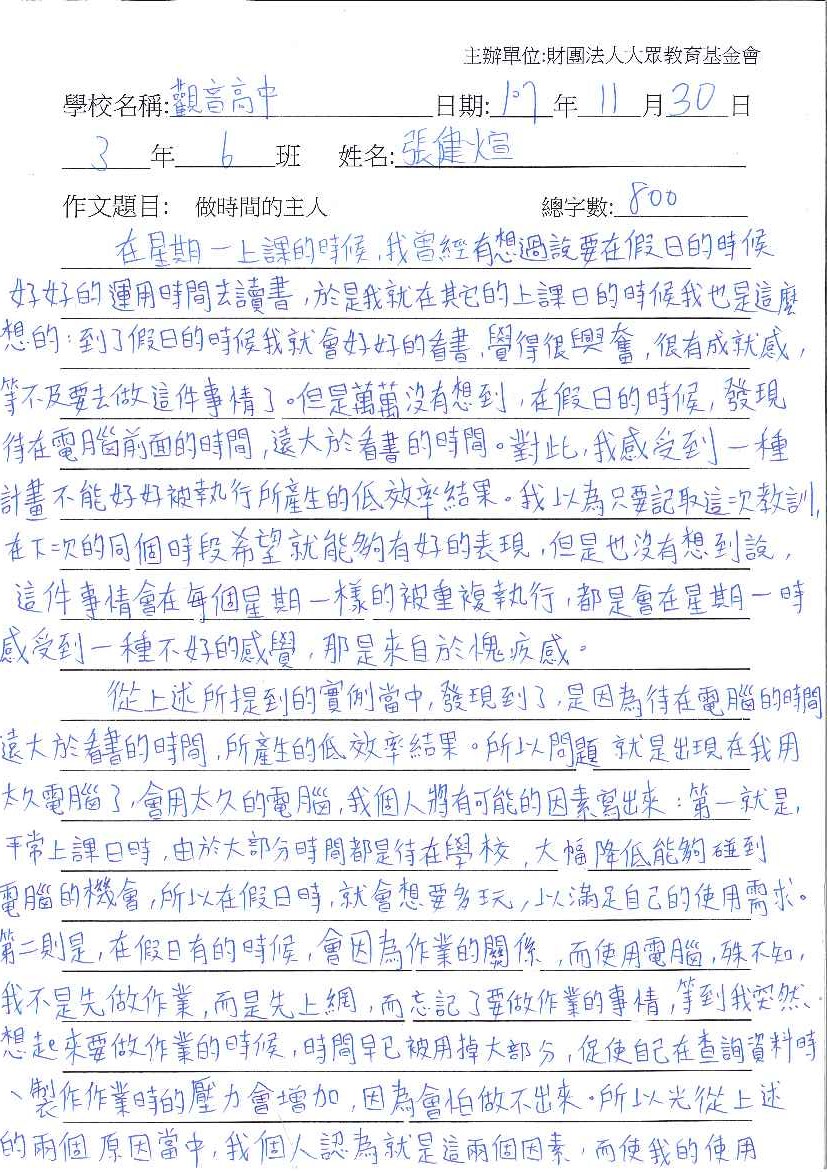 主辦單位:財團法人大眾教育基金會
學校名稱:觀音高中 日期:107年11月30日
3年6班 姓名:張健煊
作文題目: 做時間的主人 總字數:800
在星期一上課的時候,我曾經有想過說要在假日的時候
好好的運用時間去讀書,於是我就在其它的上課日的時候我也是這麼
想的:到了假日的時候我就會好好的看書,覺得很興奮,很有成就感,
等不及要去做這件事情了。但是萬萬沒有想到,在假日的時候,發現
待在電腦前面的時間,遠大於看書的時間。對此,我感受到一種
計畫不能好好被執行所產生的低效率結果。我以為只要記取這次教訓,
在下次的同個時段希望就能夠有好的表現,但是也沒有想到說,
這件事情會在每個星期一樣的被重複執行,都是會在星期一時
感受到一種不好的感覺,那是來自於愧疚感。
從上述所提到的實例當中,發現到了,是因為待在電腦的時間
遠大於看書的時間,所產生的低效率結果。所以問題就是出現在我用
太久電腦了,會用太久的電腦,我個人將有可能的因素寫出來:第一就是,
平常上課日時,由於大部分時間都是待在學校,大幅降低能夠碰到
電腦的機會,所以在假日時,就會想要多玩,以滿足自己的使用需求。
第二則是,在假日有的時候,會因為作業的關係,而使用電腦,殊不知,
我不是先做作業,而是先上網,而忘記了要做作業的事情,等到我突然
想起來要做作業的時候,時間早已被用掉大部分,促使自己在查詢資料時
、製作作業時的壓力會增加,因為會怕做不出來。所以光從上述
的兩個原因當中,我個人認為就是這兩個因素,而使我的使用